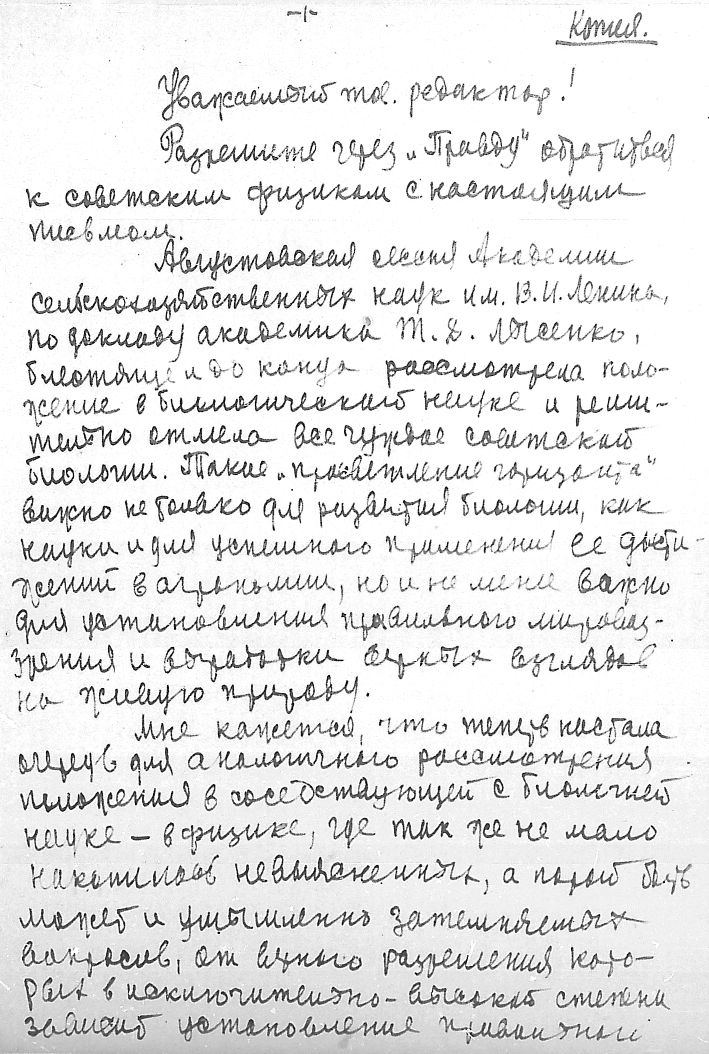 -1-
Копия.
Уважаемый тов. редактор!
Разрешите через „Правду" обратиться
к советским физикам с настоящим
письмом.
Августовская сессия Академии
сельскохозяйственных наук им. В.И. Ленина,
по докладу академика Т. Д. Лысенко,
блестяще и до конца рассмотрела поло-
жение в биологической науке и реши-
тельно отмела все чуждое советской
биологии. Такие „просветление горизонта"
важно не только для развития биологии, как
науки и для успешного применения ее дости-
жений в агрономии, но и не менее важно
для установления правильного мировоз-
зрения и выработки верных взглядов
на живую природу.
Мне кажется, что теперь настала
очередь для аналогичного рассмотрения
положения в соседствующей с биологией
науке – в физике, где так же не мало
накопилось невыясненных, а порой быть
может и умышленно затемняемых
вопросов, от верного разрешения кото-
рых в исключительно-высокой степени
зависит установление правильной